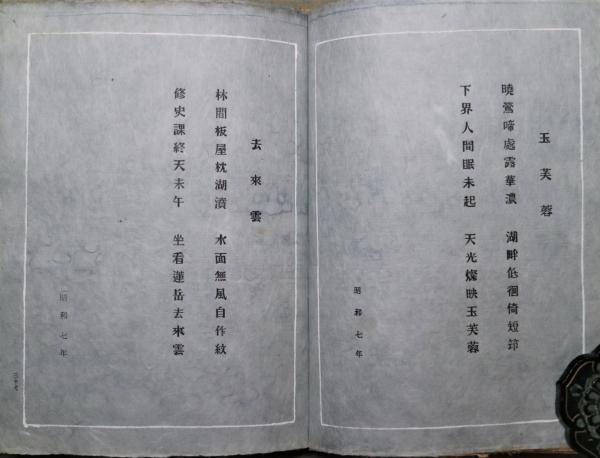 玉芙蓉
曉鶯啼處露華濃　湖畔低徊倚短筇
下界人間眠未起　天光燦映玉芙蓉
昭和七年
去來雲
林間板屋枕湖濆　水面無風自作紋
修史課終天未午　坐看蓮岳去來雲
昭和七年